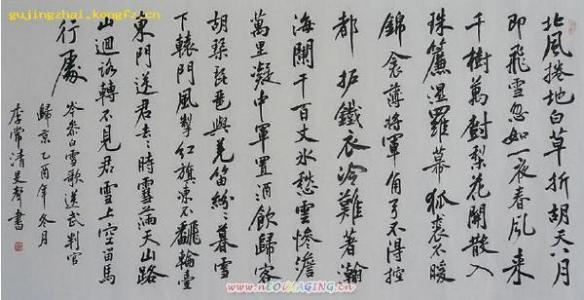 gujingzhai.kongfz.cn
北風捲地白草折胡天八月
即飛雪忽如一夜春風来
千樹萬樹梨花開散入
珠簾湿羅幕狐裘不暖
錦衾薄将軍角弓不得控
都护鐵衣冷難著瀚
海闌干百丈氷愁雲惨澹
萬里凝中軍置酒飲歸客
胡琴琵琶與羌笛紛〻暮雪
下轅門風掣紅旗凍不飜輪臺
東門送君去〻時雪滿天山路
山迴路轉不見君雪上空留馬
行處
岑參白雪歌送武判官
歸京乙酉年冬月
李常清書
www.NEOIMAGING.cn